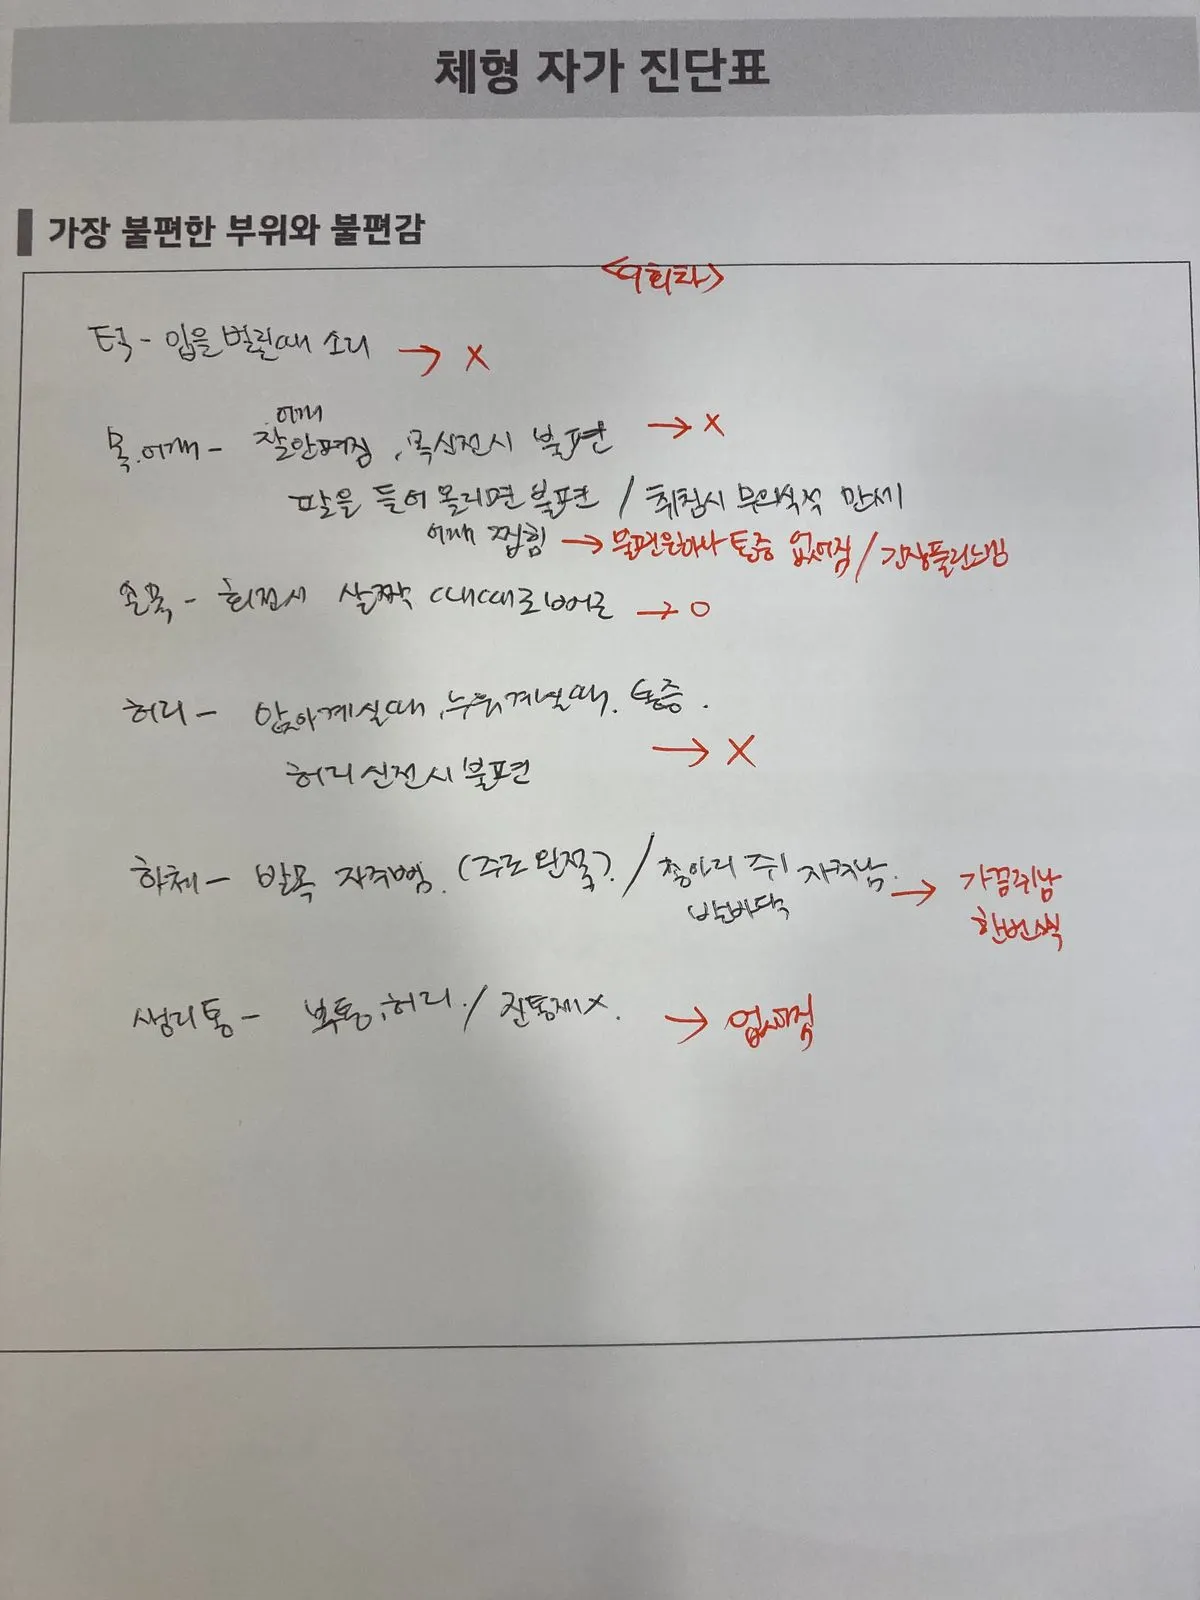 체형 자가 진단표
가장 불편한 부위와 불편감
<9회차>
턱 - 입을 벌릴때 소리 → X
어깨
목.어깨 - 잘안펴짐, 목신전시 불편 → X
팔을 들어 올리면 불편 / 취침시 무의식적 만세
어깨 찝힘 → 불편은하나 통증 없어짐 / 긴장풀린느낌
손목 - 회전시 살짝 때때로 뻐근 → O
허리 - 앉아계실때, 누워계실때. 통증.
허리 신전시 불편 → X
하체 - 발목 자주삠. (주로 왼쪽). / 종아리 쥐 자주남. → 가끔쥐남
발바닥 한번씩
생리통 - 복통, 허리. / 진통제X. → 없어짐